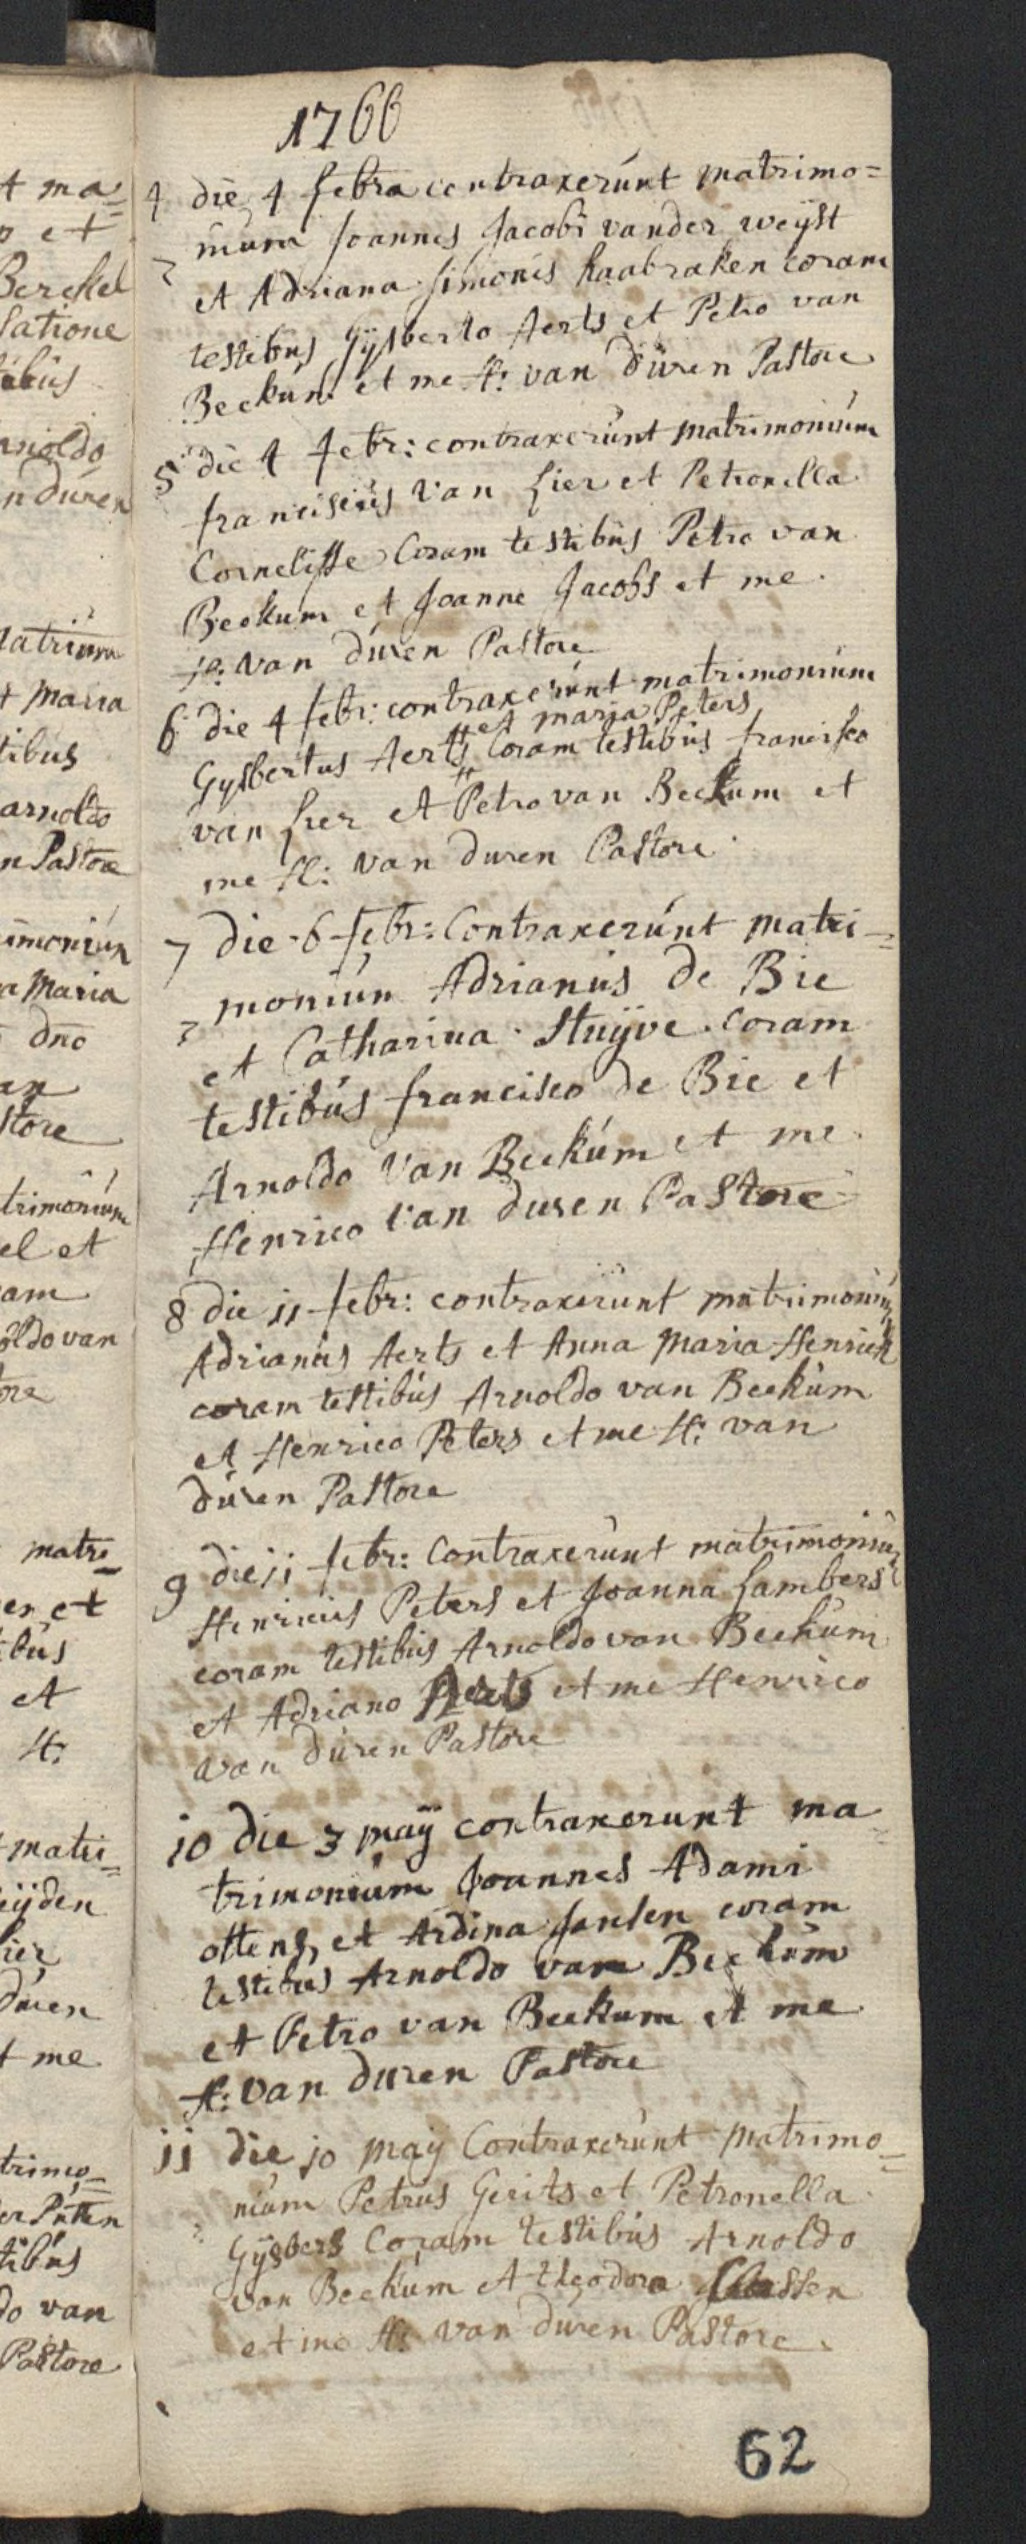 1766
4 die 4 febra contraxerúnt matrimo=
nium Joannes Jacobi vander weijst
et Adriana Simonis haabraken coram
testibus Gijsberto Aerts et Petro van
Beckum et me H: van düren Pastore
5 die 4 febr: contraxerúnt matrimoniúm
franciscús van Lier et Petronella
Cornelisse Coram testibús Petro van
Beckum et Joanne Jacobs et me
H: van düren Pastore
6 die 4 febr: contraxerúnt matrimoniúm
et maria Peters
Gysbertus Aerts Coram testibus francisco
van Lier et Petro van Beckum et
me H: van duren Pastore
7 die 6 febr: Contraxerúnt matri=
moniún Adrianús de Bie
et Catharina Stuijve coram
testibús francisco de Bie et
Arnoldo van Beckúm et me
Henrico van duren Pastore
8 die 11 febr: contraxerunt matrimonium
Adrianús Aerts et Anna Maria Henrick
coram testibús Arnoldo van Beckúm
et Henrico Peters et me H: van
dúren Pastore
9 die 11 febr: Contraxerúnt matrimonium
Henricús Peters et Joanna Lambers
coram testibús Arnoldo van Beckúm
et Adriano Aerts et me Henrico
van dúren Pastore
10 die 3 maÿ contraxerunt ma=
trimoniúm Joannes Adami
ottens, et Ardina Jansen coram
testibús Arnoldo van Beckúm
et Petro van Beckum et me
H: van duren Pastore
11 die 10 maÿ Contraxerúnt matrimo=
nium Petrus Gerits et Petronella
Gijsbers Coram testibús Arnoldo
van Beckúm et theodoro Claessen
et me H: van duren Pastore
62